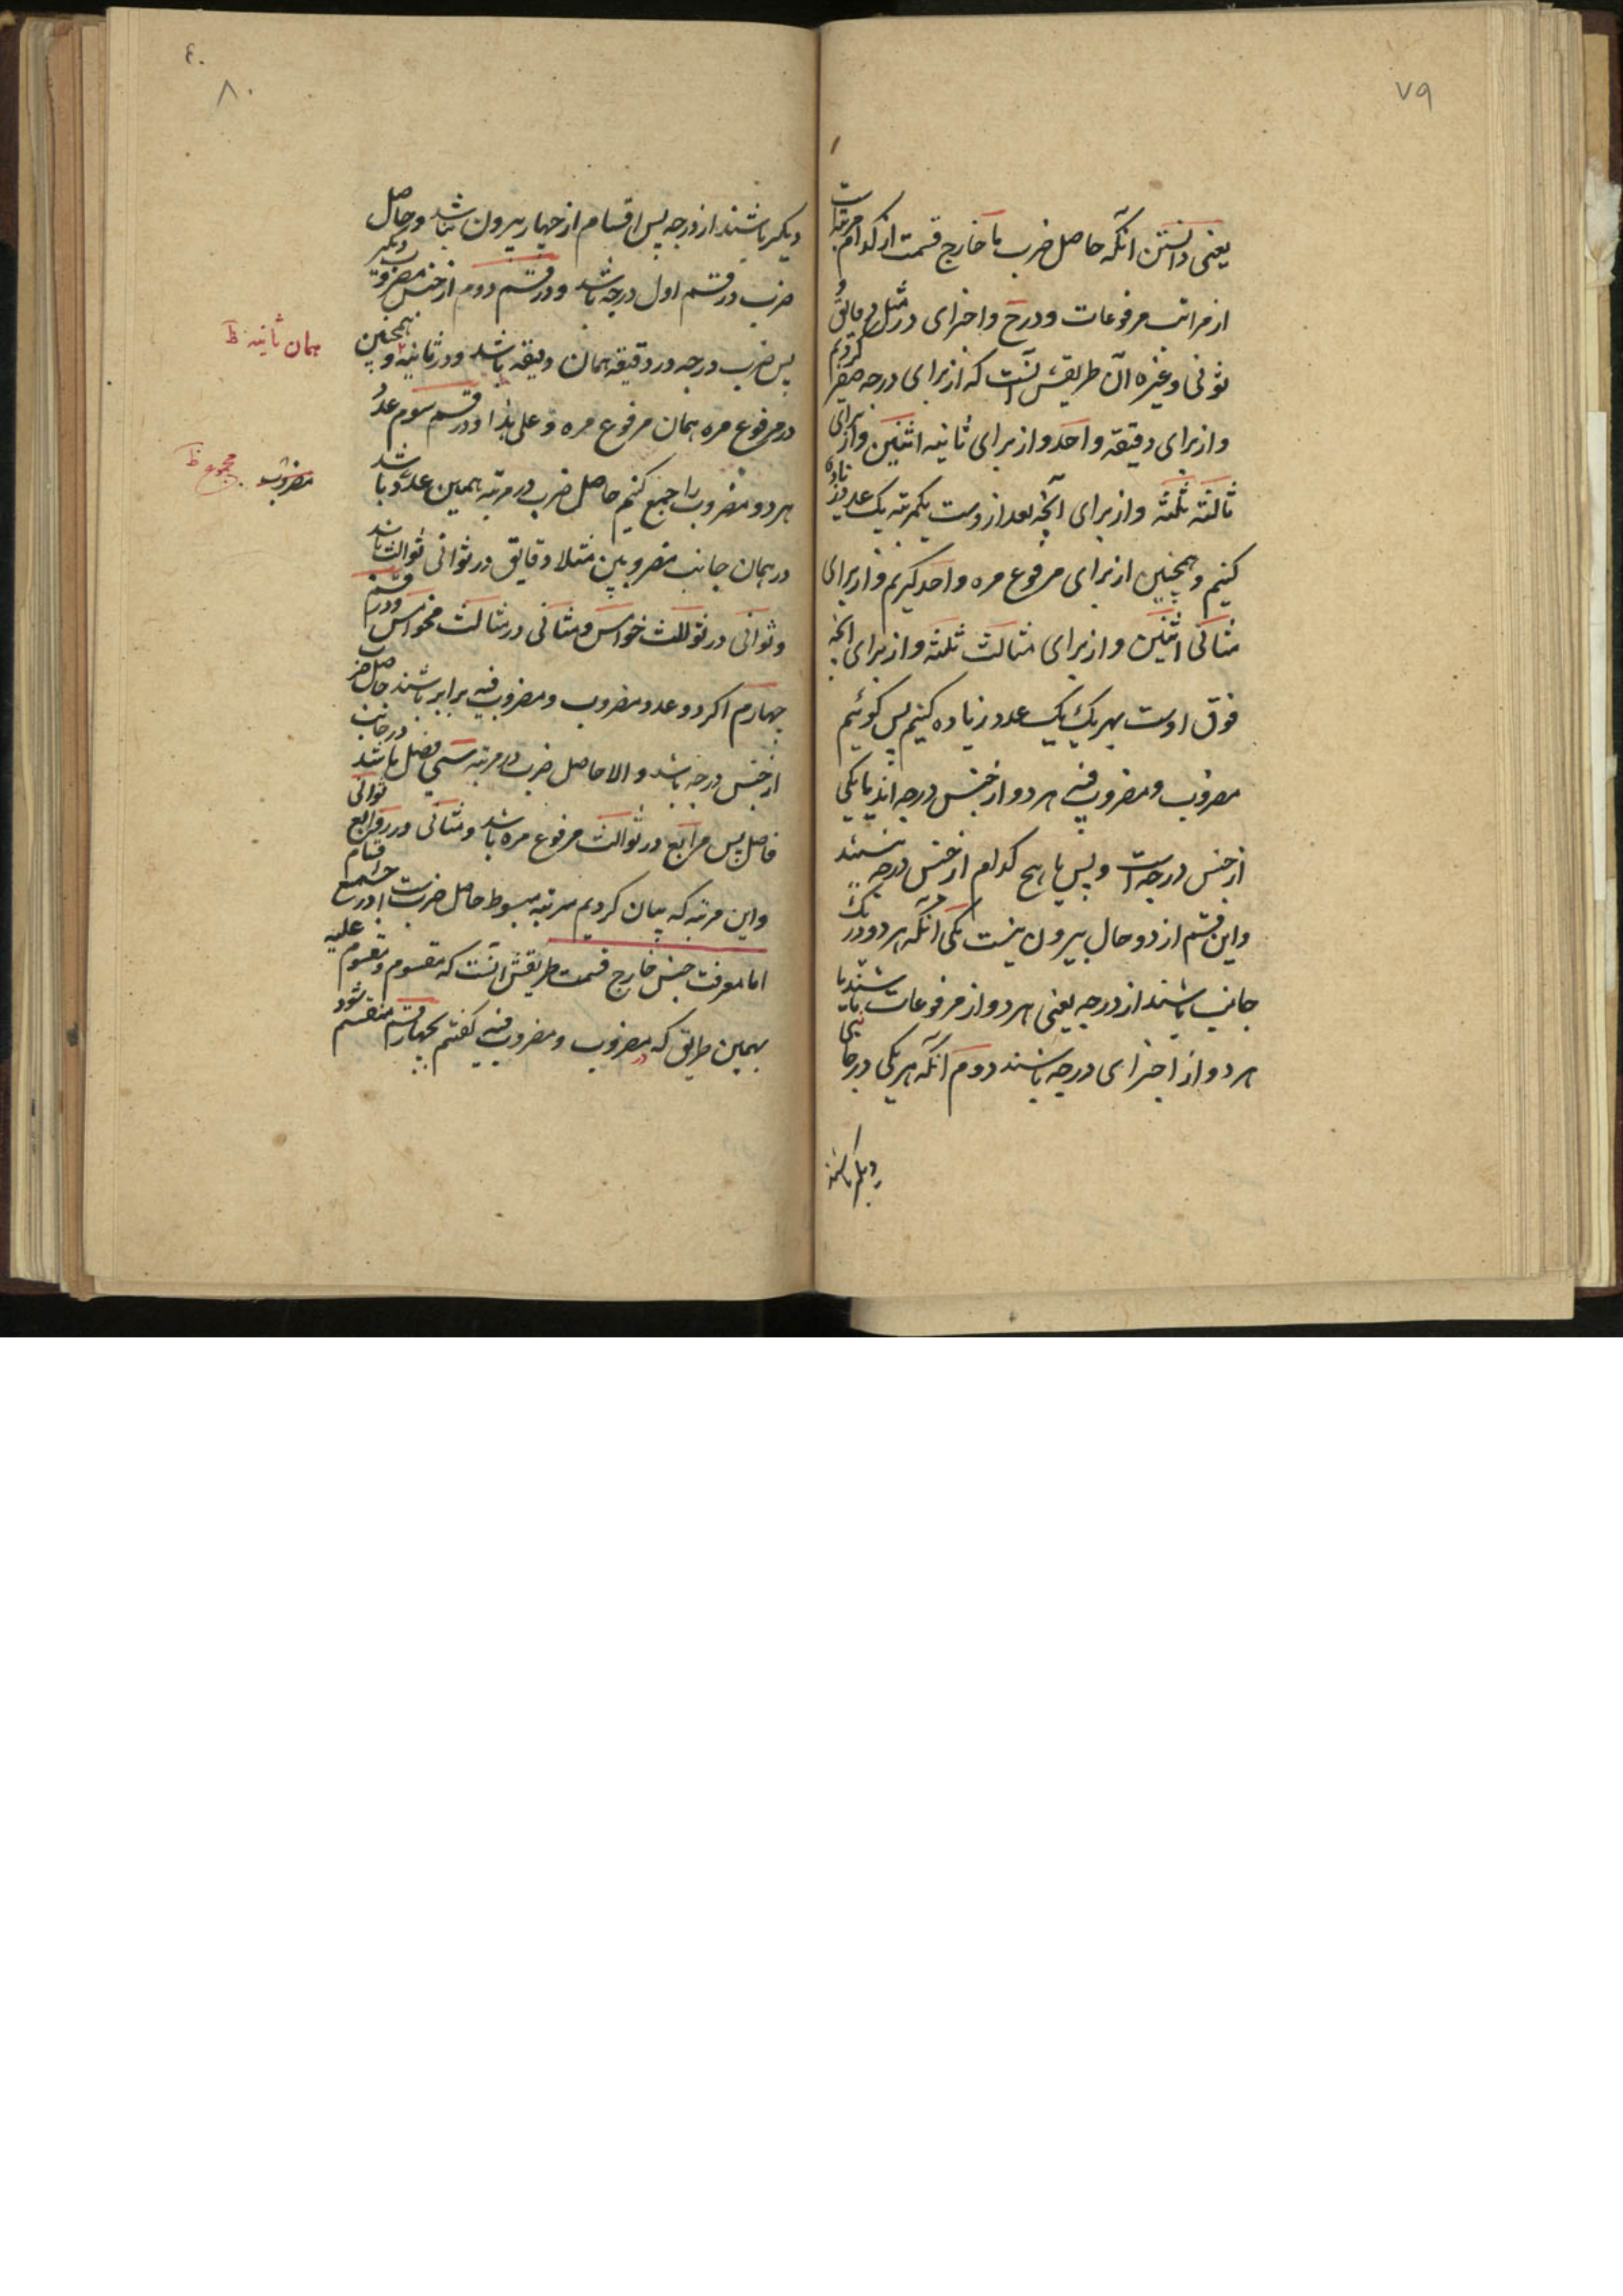 ٧٩
یعنی دانستن آنکه حاصل ضرب یا خارج قسمت از کدام مرتبه است
از مراتب مرفوعات و درج و اجزای درج مثل دقایق و
ثوانی و غیره آن طریقش آنست که از برای درجه صفر کردیم
و از برای دقیقه واحد و از برای ثانیه اثنین و از برای
ثالثه ثلثه و از برای آنچه بعد ازوست بکمرتبه یک عدد زیاده
کنیم و همچنین از برای مرفوع مره واحد گیریم و از برای
مثانی اثنین و از برای مثالث ثلثه و از برای آنچه
فوق اوست بهر یک یک عدد زیاده کنیم پس گوئیم
مضروب و مضروب فیه هر دو از جنس درجه اند یا یکی
از جنس درجه است و بس یا هیچ کدام از جنس درجه نیستند
و این قسم از دو حال بیرون نیست یکی آنکه هر دو در یک
جانب باشند از درجه یعنی هر دو از مرفوعات باشند یا
هر دو از اجزای درجه باشند دوم آنکه هر یکی در جانبی
دیگر باشند
٤٠
٨٠
دیگر باشند از درجه پس اقسام از چهار بیرون نباشد و حاصل
ضرب در قسم اول درجه باشد و در قسم دوم از جنس مضروب دیگر
پس ضرب درجه در دقیقه همان دقیقه باشد و در ثانیه و همچنین
همان ثانیه ظ
در مرفوع مره همان مرفوع مره و علی هذا و در قسم سوم عدد
هر دو مضروب را جمع کنیم حاصل ضرب در مرتبه همین عدد باشد
مضروب مجموع ظ
در همان جانب مضروبین مثلا دقایق در ثوانی ثوالث باشد
و ثوانی در ثوالث خوامس و مثانی در مثالث مخوامس و در قسم
چهارم اگر دو عدد مضروب و مضروب فیه برابر باشند حاصل ضرب
از جنس درجه باشد و الا حاصل ضرب در مرتبه سمی فضل باشد در جانب
فاضل پس مرابع در ثوالث مرفوع مره باشد و مثانی در روابع ثوانی
و این مرتبه که بیان کردیم مرتبه مبسوط حاصل ضربست در جمیع اقسام
اما معرفت جنس خارج قسمت طریقش آنست که مقسوم و مقسوم علیه
بهمین طریق که در مضروب و مضروب فیه گفتیم بچهار قسم منقسم شود